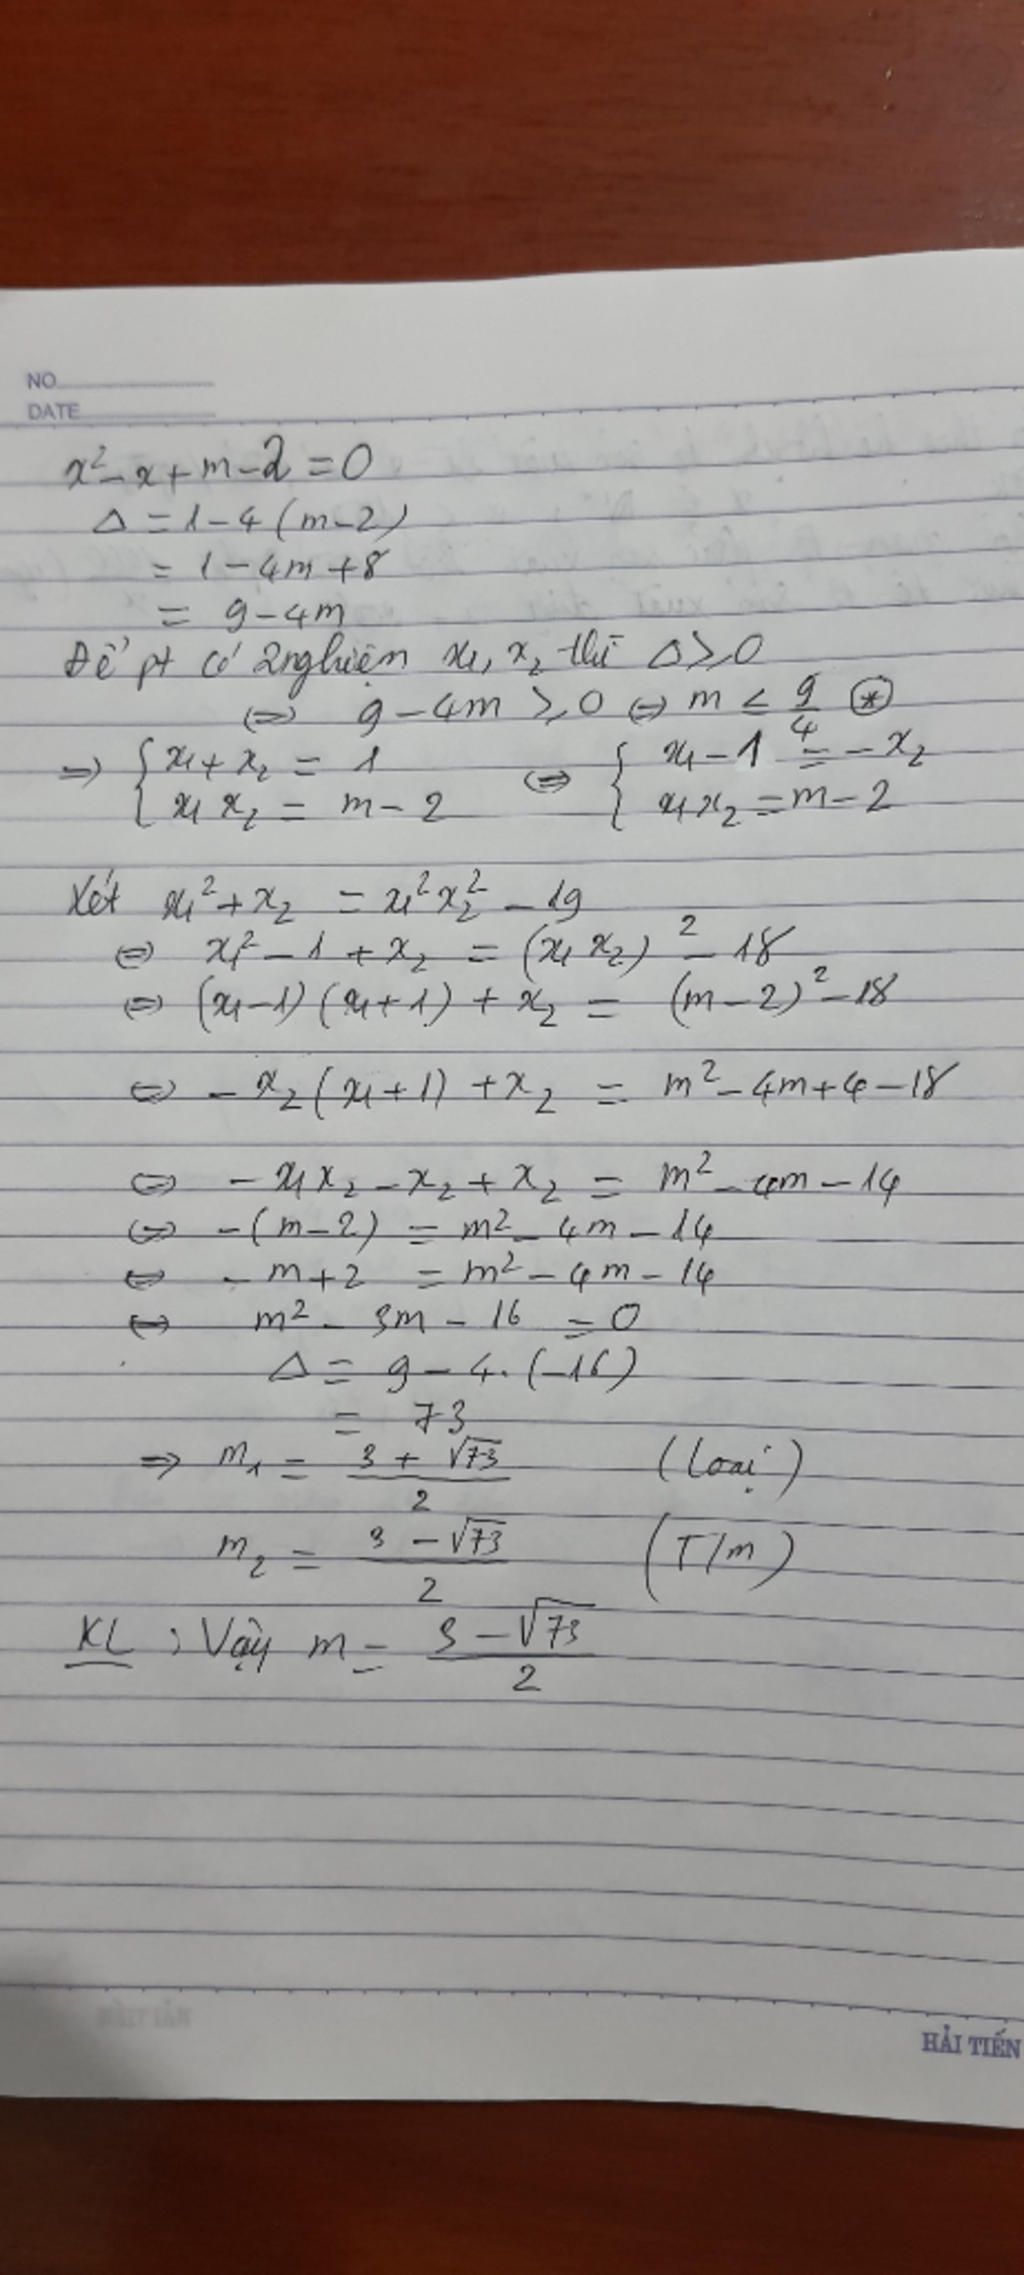 NO
DATE
x² - x + m - 2 = 0
Δ = 1 - 4(m - 2)
= 1 - 4m + 8
= 9 - 4m
Để pt có 2 nghiệm x₁, x₂ thì Δ ≥ 0
⇔ 9 - 4m ≥ 0 ⇔ m ≤ 9/4 (*)
⇒ { x₁ + x₂ = 1 ⇔ { x₁ - 1 = -x₂
x₁x₂ = m - 2 x₁x₂ = m - 2
Xét x₁² + x₂ = x₁²x₂² - 19
⇔ x₁² - 1 + x₂ = (x₁x₂)² - 18
⇔ (x₁ - 1)(x₁ + 1) + x₂ = (m - 2)² - 18
⇔ -x₂(x₁ + 1) + x₂ = m² - 4m + 4 - 18
⇔ -x₁x₂ - x₂ + x₂ = m² - 4m - 14
⇔ -(m - 2) = m² - 4m - 14
⇔ -m + 2 = m² - 4m - 14
⇔ m² - 3m - 16 = 0
Δ = 9 - 4.(-16)
= 73
⇒ m₁ = (3 + √73)/2 (loại)
m₂ = (3 - √73)/2 (T/m)
KL : Vậy m = (3 - √73)/2
HẢI TIẾN